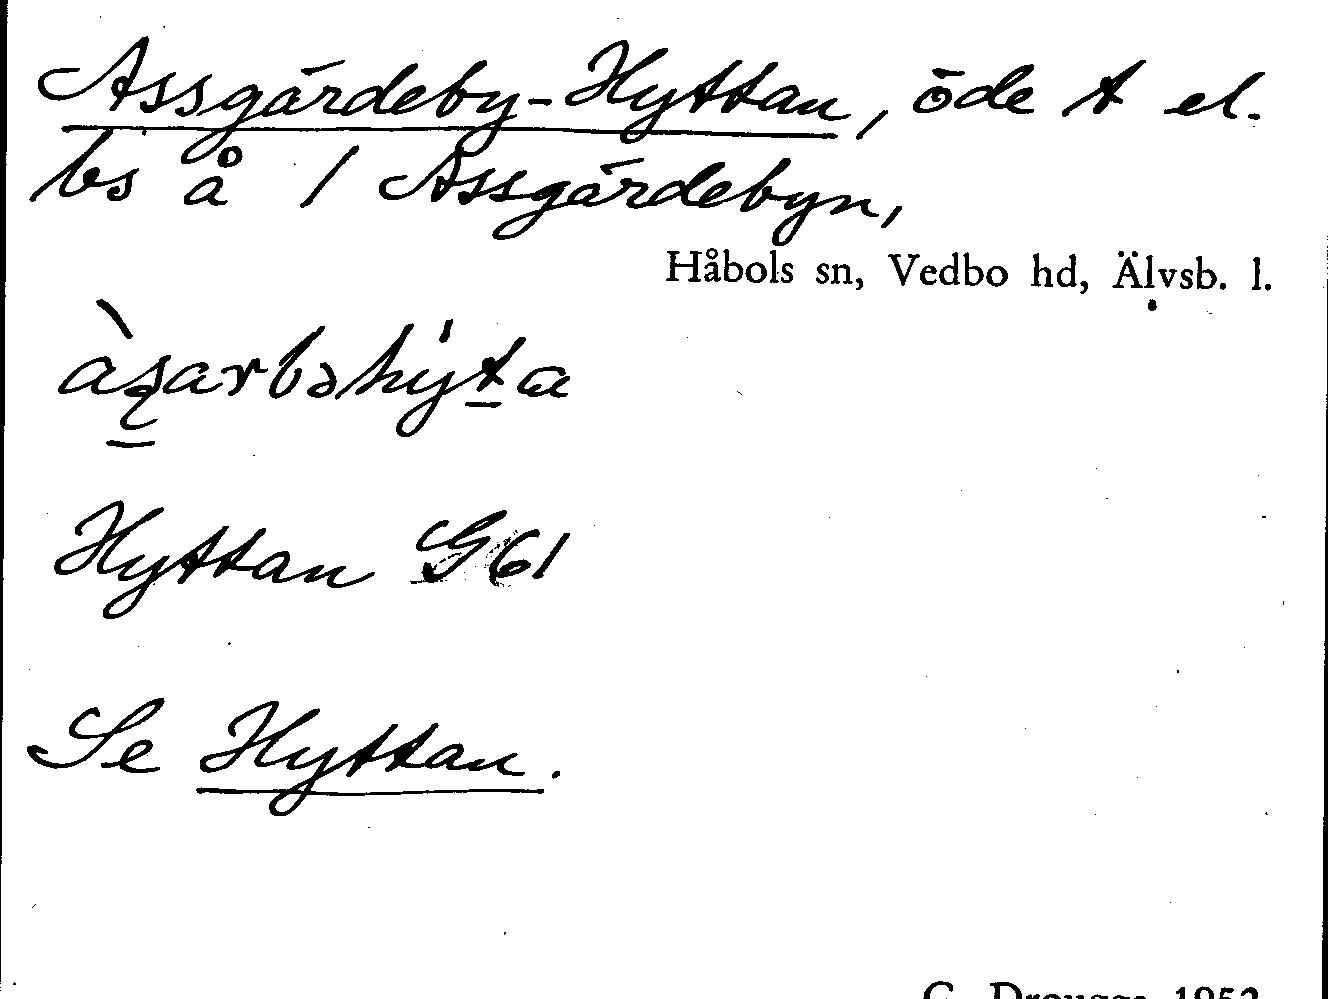 Assgärdeby-Hyttan, öde t el.
bs å 1 Assgärdebyn,
Håbols sn, Vedbo hd, Älvsb. l.
Hyttan G61
Se Hyttan.